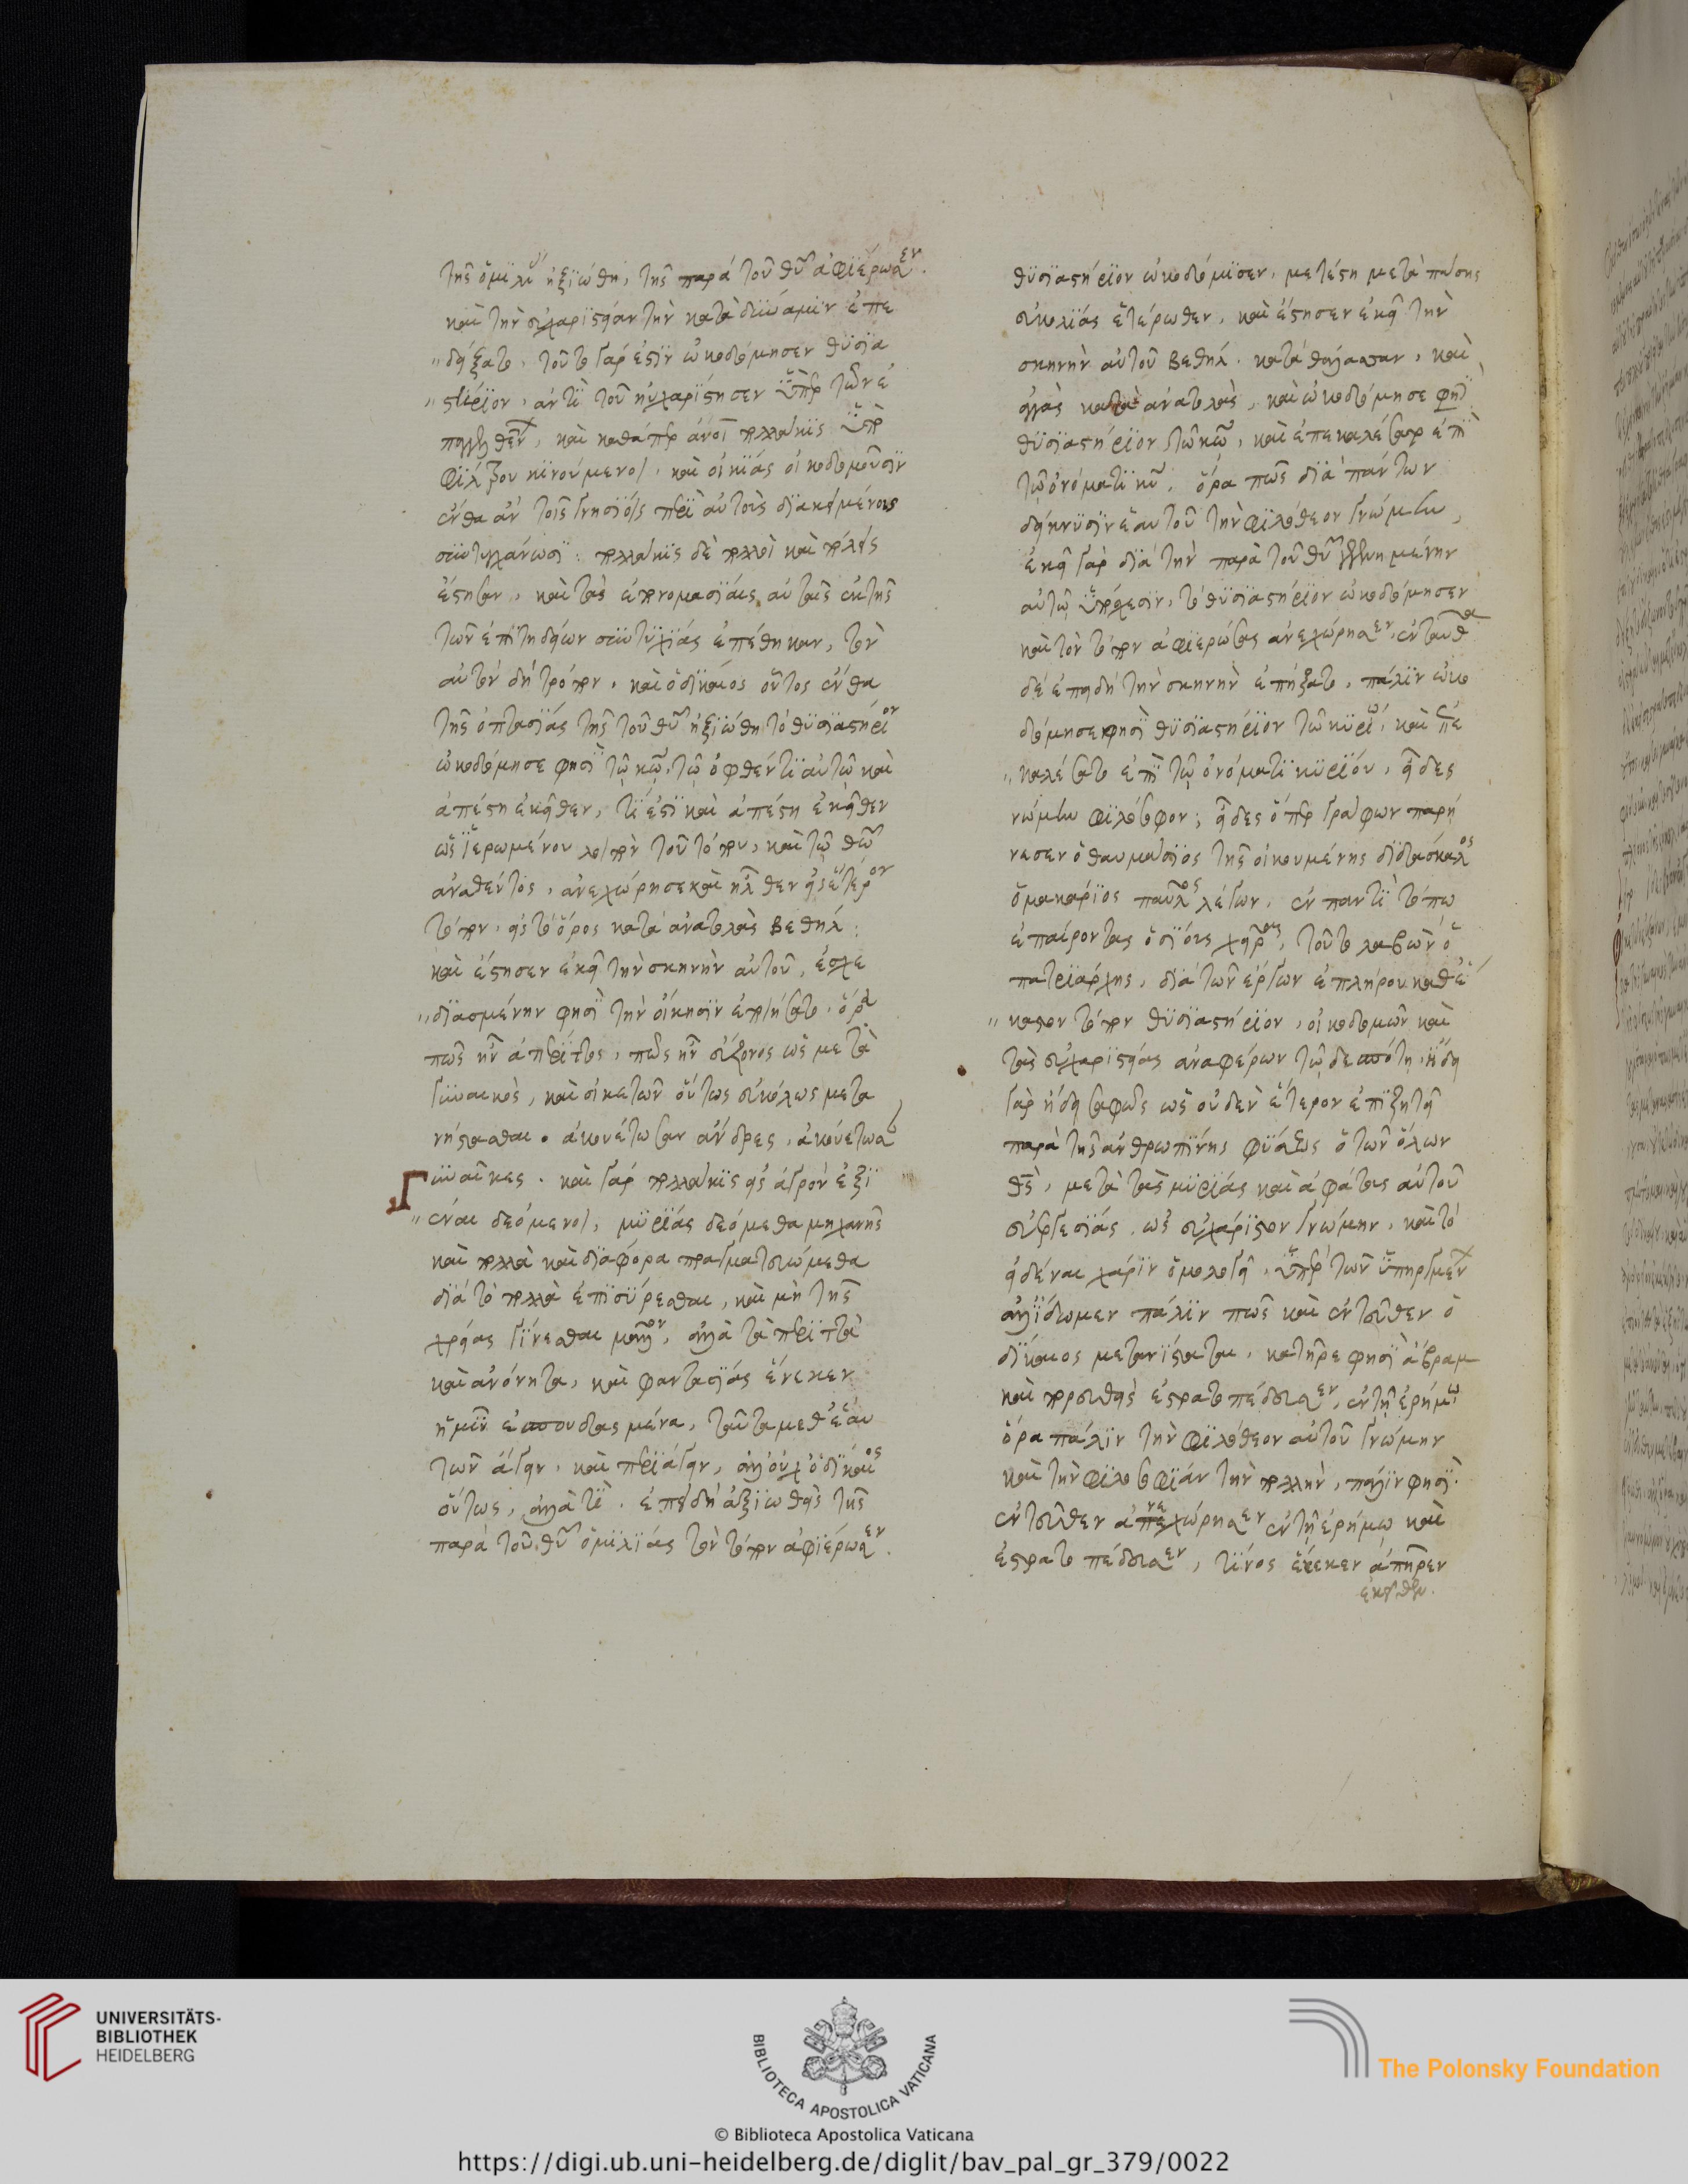 τῆς ὁμιλί ἠξιώθη, τῆς παρὰ τοῦ θῦ ἀφιέρωσεν.
καὶ τὴν εὐχαριστίαν τὴν κατὰ δύναμιν ἐπε
δείξατο, τοῦτο γάρ ἐστιν ὠκοδόμησεν θυσια
στήριον, ἀντὶ τοῦ ηὐχαρίστησεν ὑπὲρ τῶν ἐ
καὶ καθάπερ ἄνοι πολλάκις ὑπὸ
φίλτρου κινούμενοι, καὶ οἰκίας οἰκοδομοῦσιν
ἔνθα ἂν τοῖς γνησίοις περὶ αὐτοὺς διακειμένοις
συντυγχάνωσι: πολλάκις δὲ πολλοὶ καὶ πόλεις
ἔστησαν, καὶ τὰς ἐπονομασίας αὐταῖς ἐκ τῆς
τῶν ἐπιτηδείων συντυχίας ἐπέθηκαν, τὸν
αὐτὸν δὴ τρόπον, καὶ ὁ δίκαιος οὗτος ἔνθα
τῆς ὀπτασίας τῆς τοῦ θῦ ἠξιώθη τὸ θυσιαστήριον
ὠκοδόμησε φησὶ τῷ κῷ, τῷ ὀφθέντι αὐτῷ καὶ
ἀπέστη ἐκεῖθεν, τί ἐστι καὶ ἀπέστη ἐκεῖθεν
ὡς ἱερωμένου λοιπὸν τοῦ τόπου, καὶ τῷ θῶ
ἀναθέντος, ἀνεχώρησε καὶ ἦλθεν εἰς ἕτερον
τόπον, εἰς τὸ ὄρος κατὰ ἀνατολὰς Βεθηλ:
καὶ ἔστησεν ἐκεῖ τὴν σκηνὴν αὐτοῦ,
φησὶ τὴν οἴκησιν ἐποιήσατο, ὅρα
πῶς ἦν ἀπέριττος, πῶς ἦν εὔζωνος ὡς μετὰ
γυναικὸς, καὶ οἰκετῶν οὕτως εὐκόλως μετα
νίστασθαι. ἀκουέτωσαν ἄνδρες, ἀκουέτωσαν
Γυναῖκες. καὶ γὰρ πολλάκις εἰς ἀγρὸν ἐξι
έναι δεόμενοι, μυρίας δεόμεθα μηχανῆς
καὶ πολλὰ καὶ διάφορα πραγματευώμεθα
διὰ τὸ πολλὰ ἐπισύρεσθαι, καὶ μὴ τῆς
χρείας γίνεσθαι μᾶλλον, ἀλλὰ τὰ περιττὰ
καὶ ἀνόνητα, καὶ φαντασίας ἕνεκεν
ἡμῖν ἐσπουδασμένα, ταῦτα μεθ' ἑαυ
τῶν ἄγειν, καὶ περιάγειν, ἀλλ' οὐχ ὁ δίκαιος
οὕτως, ἀλλὰ τί. ἐπειδὴ ἀξιωθεὶς τῆς
παρὰ τοῦ θῦ ὁμιλίας τὸν τόπον ἀφιέρωσεν.
θυσιαστήριον ὠκοδόμισεν, μετέστη μετὰ πάσης
εὐκολίας ἑτέρωθεν, καὶ ἔστησεν ἐκεῖ τὴν
σκηνὴν αὐτοῦ Βεθηλ. κατὰ θάλασσαν, καὶ
κατὰ ἀνατολὰς, καὶ ὠκοδόμησε φησὶ
θυσιαστήριον τῷ κῷ, καὶ ἐπεκαλέσατο ἐπὶ
τῷ ὀνόματι κῦ. ὅρα πῶς διὰ πάντων
δείκνυσιν ἑαυτοῦ τὴν φιλόθεον γνώμην,
ἐκεῖ γὰρ διὰ τὴν παρὰ τοῦ θῦ γεγενημένην
αὐτῷ ὑπόσχεσιν, τὸ θυσιαστήριον ὠκοδόμησεν
καὶ τὸν τόπον ἀφιερώσας ἀνεχώρησεν, ἐνταῦθα
δὲ ἐπειδὴ τὴν σκηνὴν ἐπήξατο, πάλιν ὠκο
δόμησε φησὶ θυσιαστήριον τῷ κυρίω, καὶ ἐπε
καλέσατο ἐπὶ τῷ ὀνόματι κυρίου, εἶδες
γνώμην φιλόσοφον; εἶδες ὅπερ γράφων παρή
νεσεν ὁ θαυμάσιος τῆς οἰκουμένης διδάσκαλος
ὁ μακάριος παῦλος λέγων, ἐν παντὶ τόπω
ἐπαίροντας ὁσίους χεῖρας, τοῦτο λαβὼν ὁ
πατριάρχης, διὰ τῶν ἔργων ἐπλήρου καθ' ἕ
καστον τόπον θυσιαστήριον, οἰκοδομῶν καὶ
τὰς εὐχαριστίας ἀναφέρων τῷ δεσπότη, ἤδη
γὰρ ἤδει σαφῶς ὡς οὐδὲν ἕτερον ἐπιζητεῖ
παρὰ τῆς ἀνθρωπίνης φύσεως ὁ τῶν ὅλων
θς, μετὰ τὰς μυρίας καὶ ἀφάτους αὐτοῦ
εὐεργεσίας, ὡς εὐχάριστον γνώμην, καὶ τὸ
εἰδέναι χάριν ὁμολογεῖν, ὑπὲρ τῶν ὑπηργμένων
ἀλλ' ἴδωμεν πάλιν πῶς καὶ ἐντεῦθεν ὁ
δίκαιος μετανίσταται, καὶ ἀπῆρε φησὶ ἄβραμ
καὶ πορευθεὶς ἐστρατοπέδευσεν, ἐν τῇ ἐρήμω
ὅρα πάλιν τὴν φιλόθεον αὐτοῦ γνώμην
καὶ τὴν φιλοσοφίαν τὴν πολλὴν, πάλιν φησὶ.
ἐντεῦθεν ἀνεχώρησεν ἐν τῇ ἐρήμω καὶ
ἐστρατοπέδευσεν, τίνος ἕνεκεν ἀπῆρεν
ἐκεῖθεν.
UNIVERSITÄTS-
BIBLIOTHEK
HEIDELBERG
BIBLIOTECA APOSTOLICA VATICANA
The Polonsky Foundation
© Biblioteca Apostolica Vaticana
https://digi.ub.uni-heidelberg.de/diglit/bav_pal_gr_379/0022